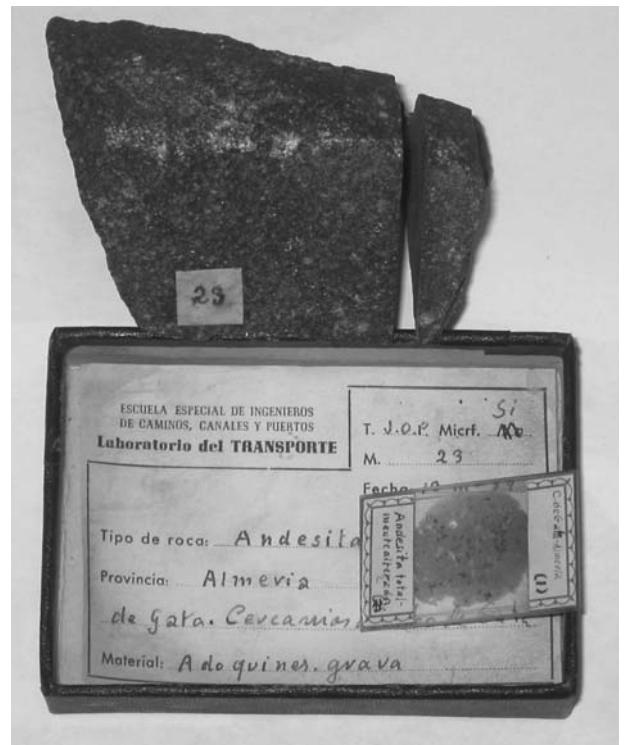 23
ESCUELA ESPECIAL DE INGENIEROS
DE CAMINOS, CANALES Y PUERTOS
Laboratorio del TRANSPORTE
Si
T. J.O.P. Micrf. No
M. 23
Fecha
Tipo de roca: Andesita
Provincia: Almeria
de Gata. Cercanias
Material: Adoquines. grava
Andesita total-
(1)